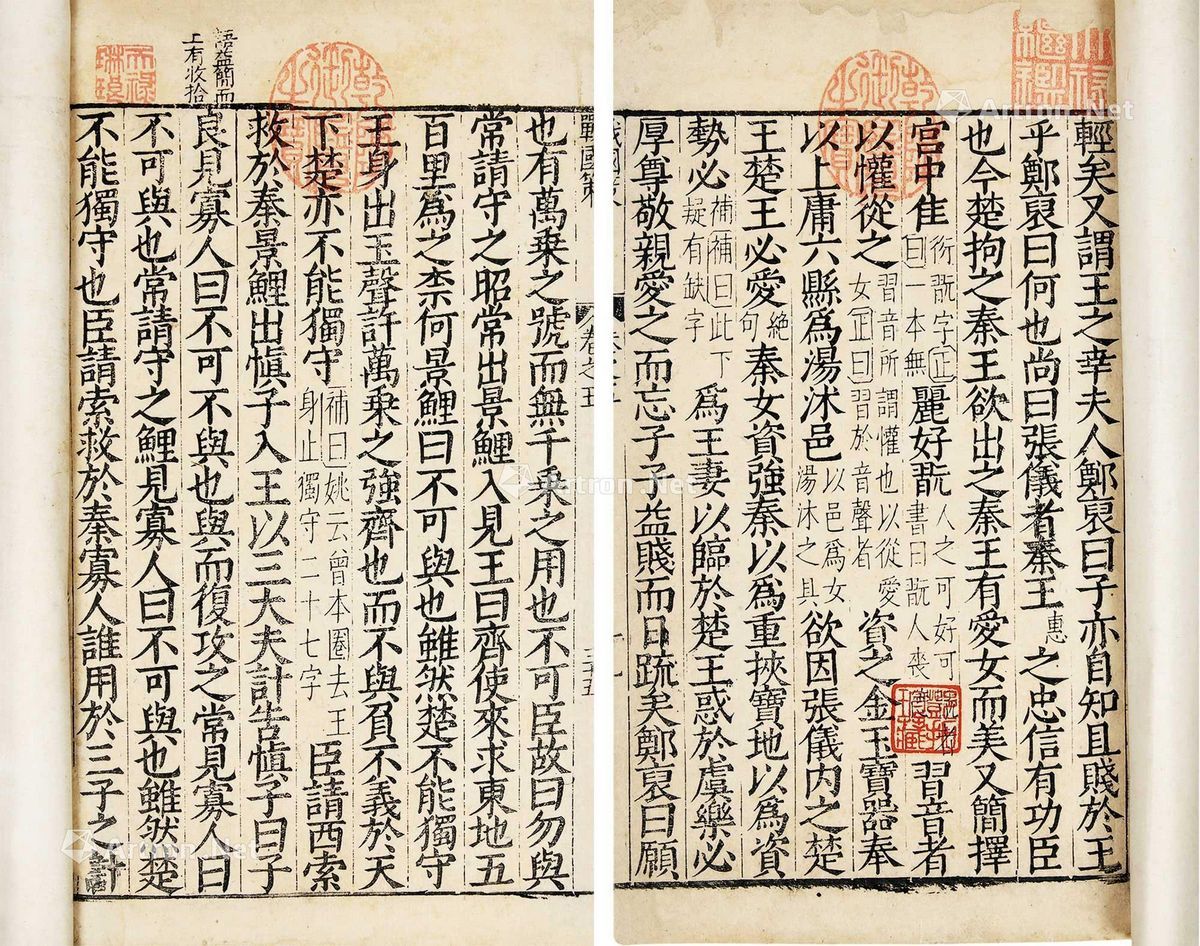 輕矣又謂王之幸夫人鄭褎曰子亦自知且賤於王
乎鄭褎曰何也尚曰張儀者秦王惠之忠信有功臣
也今楚拘之秦王欲出之秦王有愛女而美又簡擇
宮中佳衍翫字正曰一本無麗好翫人之可好可書曰翫人喪習音者
以懽從之習音所謂懽也以從愛女正曰習於音聲者資之金玉寶器奉
以上庸六縣爲湯沐邑以邑爲女湯沐之具欲因張儀内之楚
王楚王必愛絶句秦女資強秦以爲重挾寶地以爲資
勢必補補曰此下疑有缺字爲王妻以臨於楚王惑於虞樂必
厚尊敬親愛之而忘子子益賤而日疏矣鄭褎曰願
戰國策 卷之五 三十五
也有萬乗之號而無千乗之用也不可臣故曰勿與
常請守之昭常出景鯉入見王曰齊使來求東地五
百里爲之柰何景鯉曰不可與也雖然楚不能獨守
王身出玉聲許萬乗之強齊也而不與負不義於天
下楚亦不能獨守補曰姚云曾本圈去王身止獨守二十七字臣請西索
救於秦景鯉出慎子入王以三大夫計告慎子曰子
良見寡人曰不可不與也與而復攻之常見寡人曰
不可與也常請守之鯉見寡人曰不可與也雖然楚
不能獨守也臣請索救於秦寡人誰用於三子之計
語益簡而
上有收拾
Artron.Net